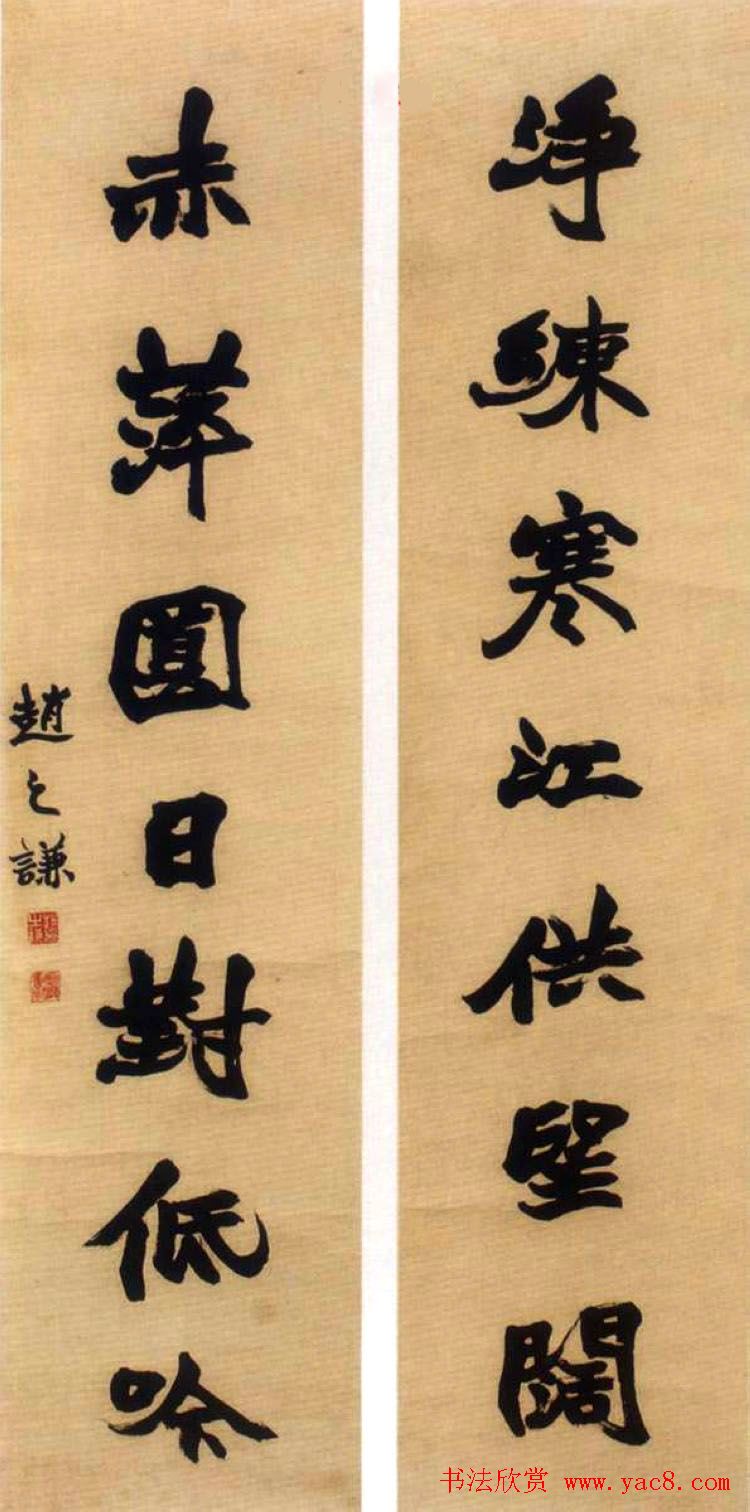 淨練寒江供望闊
赤萍圓日對低吟
趙之謙
书法欣赏 www.yac8.com